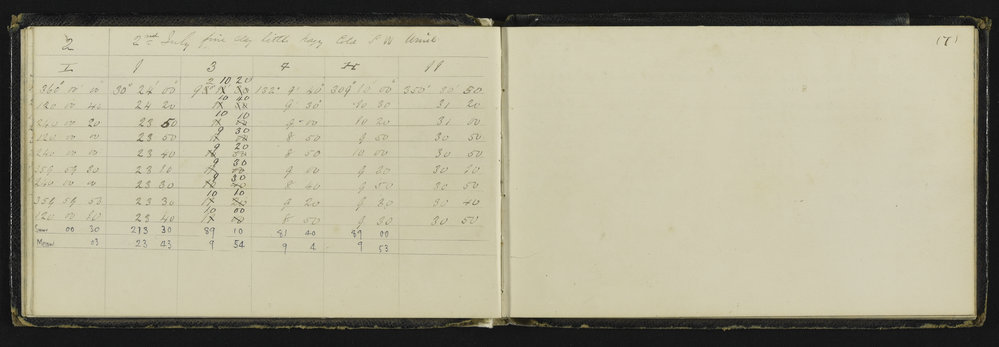 2 2nd July fine day little hazy Cold S W Wind (7)
I 1 3 4 11
2 10 20
360° 00' 00" 30° 24' 00" 182° 9' 40" 309° 10' 00" 350° 30' 50
10 40
120 00 40 24 20 9 30 10 30 31 20
10 10
240 00 20 23 50 9 10 10 20 31 00
9 30
120 00 00 23 50 8 50 9 50 30 50
9 20
240 00 00 23 40 8 50 10 00 30 50
9 30
359 59 50 23 10 9 00 9 20 30 10
9 30
240 00 00 23 30 8 40 9 50 30 50
10 10
359 59 53 23 30 9 20 9 30 30 40
10 00
120 00 10 23 40 8 50 9 30 30 50
Sum 00 30 213 30 89 10 81 40 89 00
Mean 03 23 43 9 54 9 4 9 53